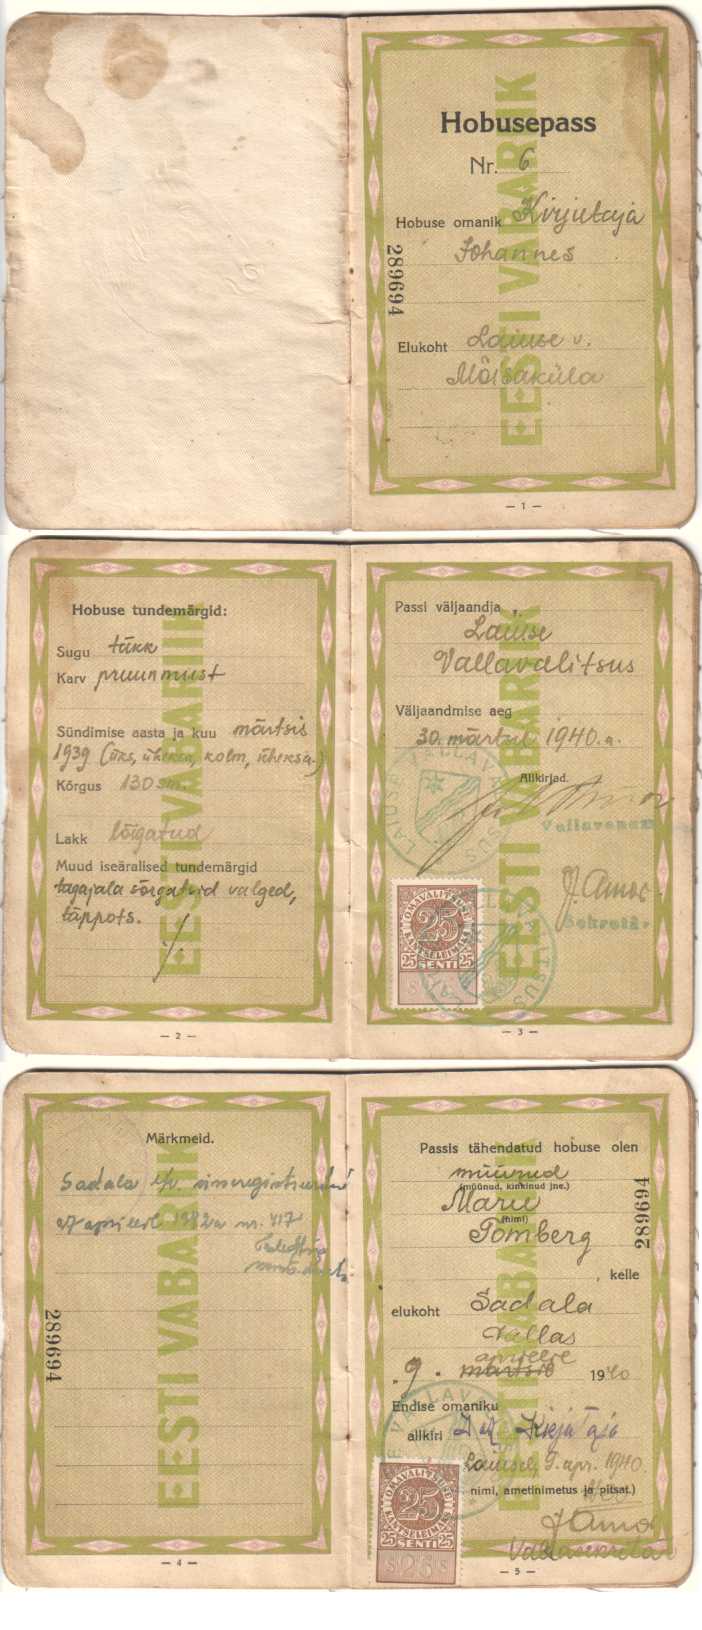 EESTI VABARIIK
Hobusepass
Nr. 6
Hobuse omanik Kirjutaja
Johannes
289694
Elukoht Laiuse v.
Mõisaküla
— 1 —
EESTI VABARIIK
Hobuse tundemärgid:
Sugu täkk
Karv pruunmust
Sündimise aasta ja kuu märtsis
1939 (üks, üheksa, kolm, üheksa.)
Kõrgus 130 sm.
Lakk lõigatud
Muud iseäralised tundemärgid
tagajala sõrgatsid valged,
täppots.
— 2 —
EESTI VABARIIK
Passi väljaandja
Laiuse
Vallavalitsus
Väljaandmise aeg
30. märtsil 1940. a.
Allkirjad.
Vallavanem
J. Amos
Sekretär
LAIUSE VALLAVALITSUS
OMAVALITSUSTE
KANTSELEIMAKS
25
25 SENTI 25
LAIUSE VALLAVALITSUS
— 3 —
EESTI VABARIIK
Märkmeid.
Sadala
27 apriill 1942a nr. 417
289694
— 4 —
EESTI VABARIIK
Passis tähendatud hobuse olen
müünud
(müünud, kinkinud jne.)
Marie
(nimi)
Tomberg
289694
kelle
elukoht Sadala
vallas
aprillil
9. märtsil 1940
Endise omaniku
allkiri Kirjutaja
Laiusel, 9. apr. 1940.
nimi, ametinimetus ja pitsat.)
J Amos
Vallasekretär
OMAVALITSUSTE
KANTSELEIMAKS
25
25 SENTI 25
S 25 S
— 5 —